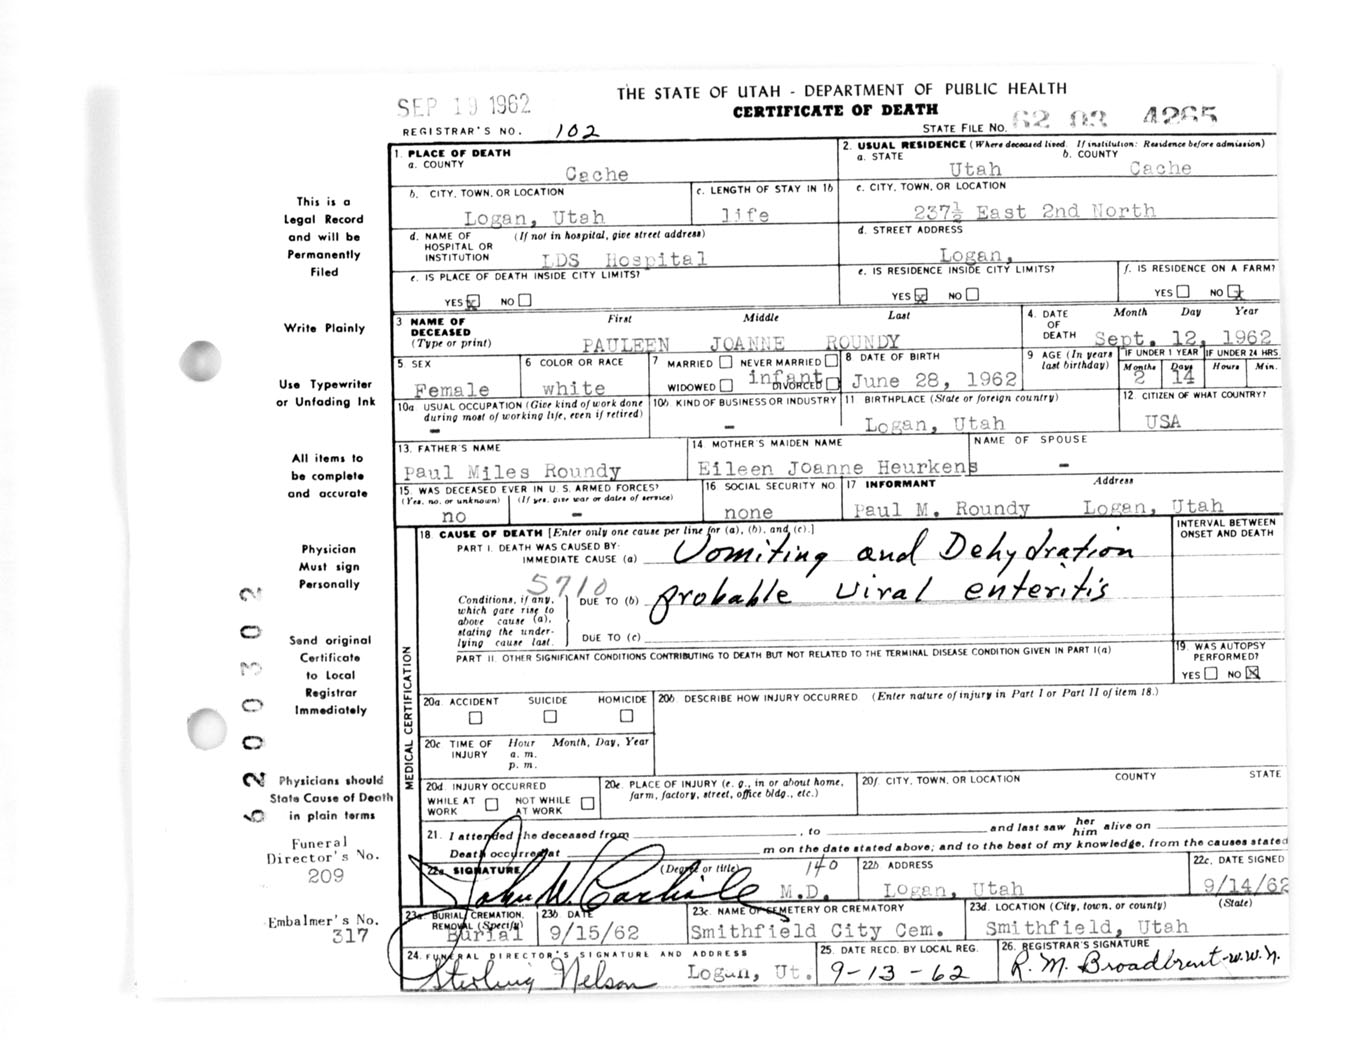 SEP 19 1962
THE STATE OF UTAH - DEPARTMENT OF PUBLIC HEALTH
CERTIFICATE OF DEATH
REGISTRAR'S NO. 102
STATE FILE NO. 62 03 4265
1. PLACE OF DEATH
a. COUNTY
Cache
2. USUAL RESIDENCE (Where deceased lived. If institution: Residence before admission)
a. STATE b. COUNTY
Utah Cache
b. CITY, TOWN, OR LOCATION
Logan, Utah
c. LENGTH OF STAY IN 1b
life
c. CITY, TOWN, OR LOCATION
237½ East 2nd North
d. NAME OF HOSPITAL OR INSTITUTION (If not in hospital, give street address)
LDS Hospital
d. STREET ADDRESS
Logan,
e. IS PLACE OF DEATH INSIDE CITY LIMITS?
YES x NO
e. IS RESIDENCE INSIDE CITY LIMITS?
YES x NO
f. IS RESIDENCE ON A FARM?
YES NO x
3 NAME OF DECEASED (Type or print)
First Middle Last
PAULEEN JOANNE ROUNDY
4. DATE OF DEATH
Month Day Year
Sept. 12, 1962
5 SEX
Female
6 COLOR OR RACE
white
7 MARRIED NEVER MARRIED
WIDOWED DIVORCED
infant
8 DATE OF BIRTH
June 28, 1962
9 AGE (In years last birthday)
IF UNDER 1 YEAR
Months Days
2 14
IF UNDER 24 HRS.
Hours Min.
10a. USUAL OCCUPATION (Give kind of work done during most of working life, even if retired)
-
10b. KIND OF BUSINESS OR INDUSTRY
-
11 BIRTHPLACE (State or foreign country)
Logan, Utah
12. CITIZEN OF WHAT COUNTRY?
USA
13. FATHER'S NAME
Paul Miles Roundy
14 MOTHER'S MAIDEN NAME
Eileen Joanne Heurkens
NAME OF SPOUSE
-
15. WAS DECEASED EVER IN U. S. ARMED FORCES?
(Yes, no, or unknown) (If yes, give war or dates of service)
no -
16 SOCIAL SECURITY NO.
none
17 INFORMANT Address
Paul M. Roundy Logan, Utah
MEDICAL CERTIFICATION
18 CAUSE OF DEATH [Enter only one cause per line for (a), (b), and (c).]
INTERVAL BETWEEN ONSET AND DEATH
PART I. DEATH WAS CAUSED BY:
IMMEDIATE CAUSE (a) Vomiting and Dehydration
5710
Conditions, if any, which gave rise to above cause (a), stating the underlying cause last.
DUE TO (b) probable viral enteritis
DUE TO (c)
PART II. OTHER SIGNIFICANT CONDITIONS CONTRIBUTING TO DEATH BUT NOT RELATED TO THE TERMINAL DISEASE CONDITION GIVEN IN PART I(a)
19. WAS AUTOPSY PERFORMED?
YES NO x
20a. ACCIDENT SUICIDE HOMICIDE
20b DESCRIBE HOW INJURY OCCURRED. (Enter nature of injury in Part I or Part II of item 18.)
20c TIME OF INJURY
Hour Month, Day, Year
a. m.
p. m.
20d. INJURY OCCURRED
WHILE AT WORK NOT WHILE AT WORK
20e. PLACE OF INJURY (e. g., in or about home, farm, factory, street, office bldg., etc.)
20f. CITY, TOWN, OR LOCATION COUNTY STATE
21. I attended the deceased from , to and last saw her him alive on
Death occurred at m on the date stated above; and to the best of my knowledge, from the causes stated
22a SIGNATURE (Degree or title) 140
John W. Carlisle M.D.
22b ADDRESS
Logan, Utah
22c. DATE SIGNED
9/14/62
23a BURIAL, CREMATION, REMOVAL (Specify)
Burial
23b DATE
9/15/62
23c. NAME OF CEMETERY OR CREMATORY
Smithfield City Cem.
23d. LOCATION (City, town, or county) (State)
Smithfield, Utah
24. FUNERAL DIRECTOR'S SIGNATURE AND ADDRESS
Sterling Nelson Logan, Ut.
25. DATE RECD. BY LOCAL REG.
9-13-62
26. REGISTRAR'S SIGNATURE
R. M. Broadbent-w.w.n.
This is a
Legal Record
and will be
Permanently
Filed
Write Plainly
Use Typewriter
or Unfading Ink
All items to
be complete
and accurate
Physician
Must sign
Personally
Send original
Certificate
to Local
Registrar
Immediately
Physicians should
State Cause of Death
in plain terms
Funeral
Director's No.
209
Embalmer's No.
317